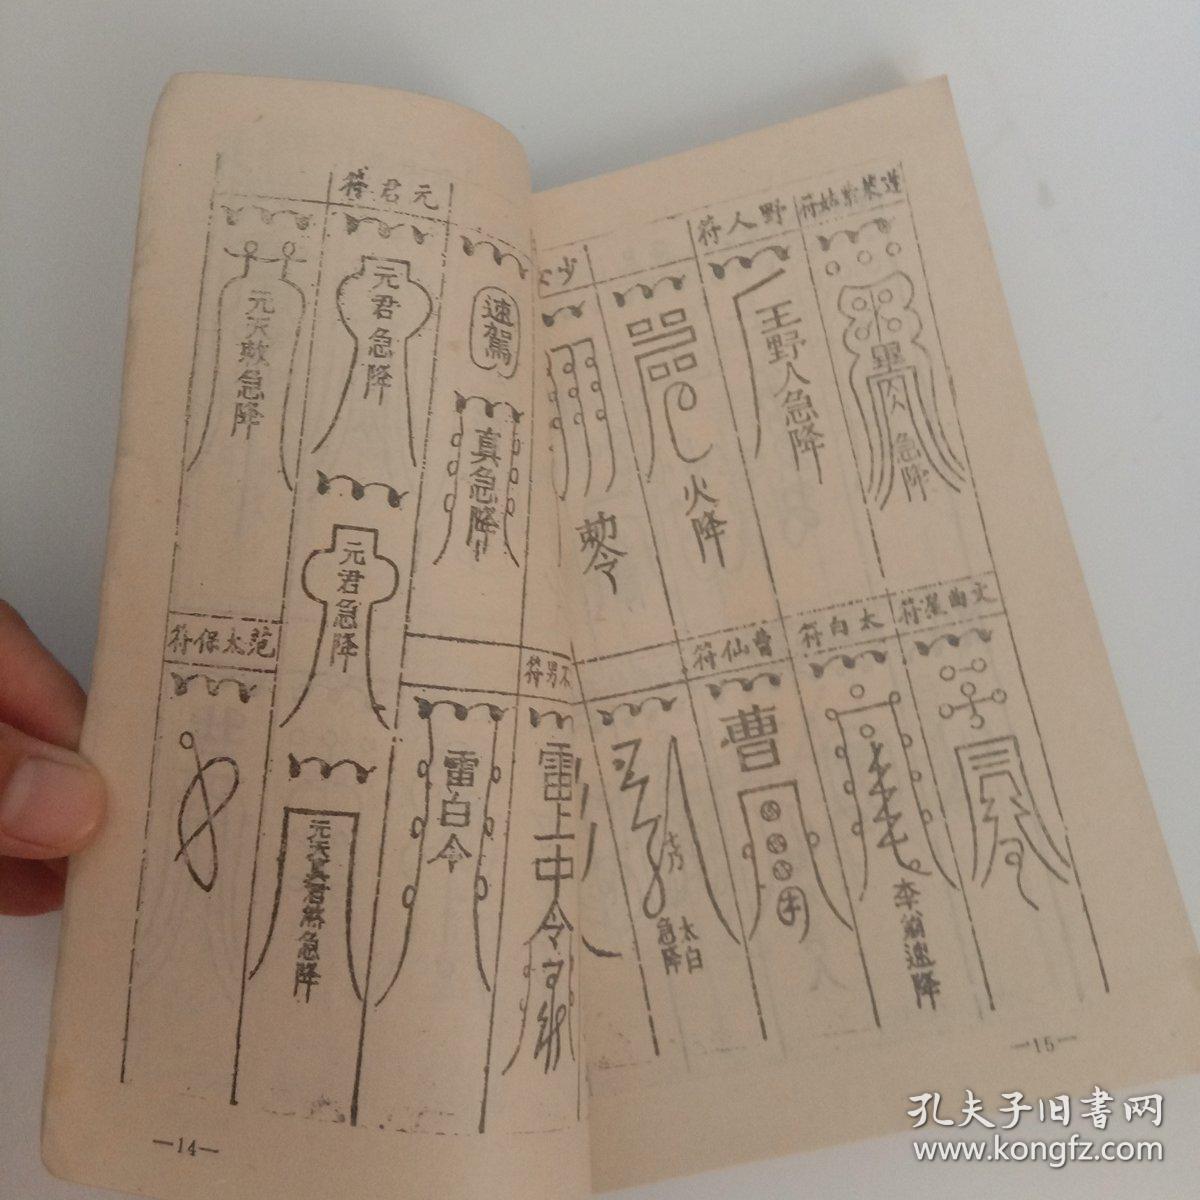 野人符
王野人急降
急降
火降
敕令
文曲星符
太白符
李翁速降
曹仙符
曹
太白
急降
—15—
速駕
真急降
元君符
元君急降
元君急降
急降
不男符
雷上中令
雷白令
范太保符
—14—
孔夫子旧書网
www.kongfz.com